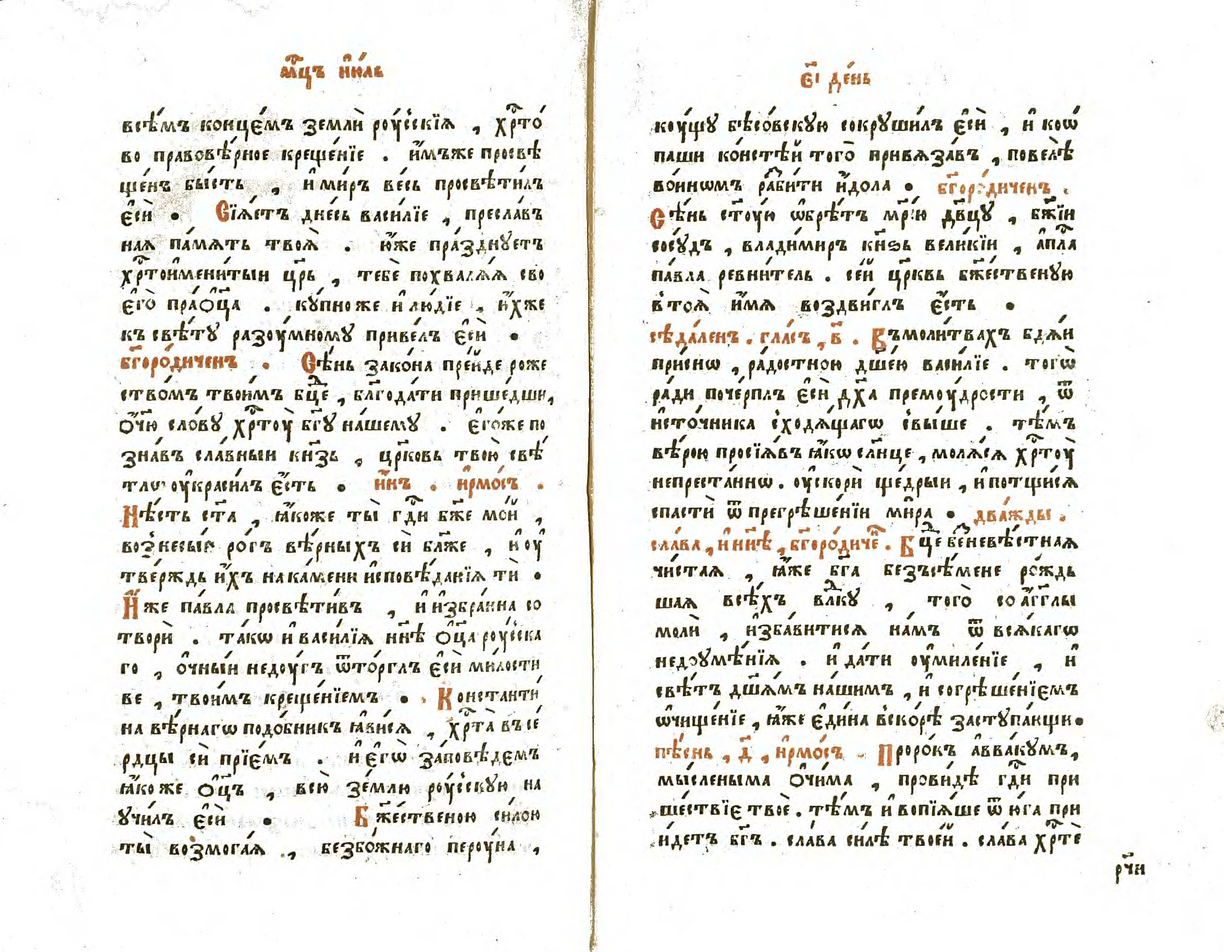 мⷭ҇цъ ию́ль
всѣ́мъ конце́мъ землѝ роу́сскїѧ , хрⷭ҇то́
во правовѣ́рное креще́нїе . и҆́мъже просвѣ
ще́нъ бы́сть , и҆ ми́ръ ве́сь просвѣти́лъ
є҆сѝ • Сїѧ́етъ дне́сь васи́лїе , пресла́в
наѧ па́мѧть твоѧ̀ . ю҆́же пра́зднуетъ
хрⷭ҇тоимени́тыи цр҃ь , тебѐ похвалѧ́ѧ сво
є҆го̀ праѻ҆ц҃а . ку́пноже и҆ лю́дїе , и҆́хже
къ свѣ́ту разоу́мному приве́лъ є҆сѝ •
бг҃оро́диченъ . Сѣ́нь зако́на пре́йде роже
ство́мъ твои́мъ бц҃е , благода́ти прише́дши,
ѻ҆́чїю сло́ву хрⷭ҇тоу̀ бг҃у на́шему . є҆го́же по
зна́въ сла́вныи кнѧ́зь , цр҃ковь твою̀ свѣ
тло оу҆кра́силъ є҆́сть • и҆́нъ . и҆рмо́съ .
Нѣ́сть ст҃а , ꙗ҆́коже ты̀ гдⷭ҇и бж҃е мо́й ,
вознесы́и ро́гъ вѣ́рныхъ сѝ бл҃же , и҆ оу҆
твержд​ь и҆́хъ на ка́мени и҆сповѣ́данїѧ тѝ •
И҆́же па́вла просвѣти́въ , и҆ и҆збра́нна со
творѝ . та́кѡ и҆ васи́лїѧ нн҃ѣ ѻ҆ц҃а роу́сска
го , ѻ҆́чныи неду́гъ ѿто́рглъ є҆сѝ ми́лости
ве , твои́мъ креще́нїемъ • Константи́
на вѣ́рнагѡ подо́бникъ ꙗ҆ви́сѧ , хрⷭ҇та̀ въ се́
рдцы сѝ прїе́мъ . и҆ є҆гѡ̀ за́повѣдемъ
ꙗ҆́коже ѻ҆ц҃ъ , всю̀ зе́млю роу́сскую на
учи́лъ є҆сѝ • Бж҃е́ственою си́лою
ты̀ возмога́ѧ , безбо́жнаго пероу́на ,
є҃і де́нь
коу́щу бѣсо́вскую сокруши́лъ є҆сѝ , и҆ ко́ѡ
пащи ко́нстѣи того̀ привѧза́въ , повелѣ̀
во́инѡмъ ра́бити и҆́дола • бг҃оро́диченъ .
Сѣ́нь ст҃у́ю ѡ҆брѣ́тъ мр҃і́ю дв҃цу , бж҃їи
сосу́дъ , влади́миръ кнѧ́зь вели́кїи , а҆пⷭ҇ла
па́вла ревни́тель . се́й цр҃квь бж҃е́ственую
в тоѧ̀ и҆́мѧ воздви́глъ є҆́сть •
сѣда́ленъ . гла́съ , в҃ . Въ моли́твахъ бдѧ́и
при́снѡ , ра́достною дш҃е́ю васи́лїе . тогѡ̀
ра́ди поче́рплъ є҆сѝ дх҃а прему́дрости , ѿ
и҆сто́чника сходѧ́щагѡ свы́ше . тѣ́мъ
вѣ́рою просїѧ́въ ꙗ҆́кѡ сл҃нце , молѧ́сѧ хрⷭ҇тоу̀
непреста́ннѡ . оу҆скорѝ ще́дрыи , и҆ потщи́сѧ
спастѝ ѿ прегрѣше́нїи ми́ра • два́жды .
сла́ва , и҆ нн҃ѣ , бг҃оро́диче . Бц҃е безневѣ́стнаѧ
чи́стаѧ , ꙗ҆́же бг҃а безъ сѣ́мене ро́ждь
шаѧ всѣ́хъ влⷣку , того̀ со а҆́гг҃лы
молѝ , и҆зба́витисѧ на́мъ ѿ всѧ́кагѡ
недоумѣ́нїѧ . и҆ да́ти оу҆миле́нїе , и҆
свѣ́тъ дш҃а́мъ на́шимъ , и҆ согрѣше́нїемъ
ѡ҆чище́нїе , ꙗ҆́же є҆ди́на вско́рѣ заступа́ющи•
пѣ́снь , д҃ , и҆рмо́съ . Проро́къ а҆вваку́мъ,
мы́сленыма ѻ҆чи́ма , прови́дѣ гдⷭ҇и при
ше́ствїе твоѐ . тѣ́мъ и҆ вопїѧ́ше ѿ ю҆́га при
и҆́детъ бг҃ъ . сла́ва си́лѣ твое́й . сла́ва хрⷭ҇тѐ
рч҃и